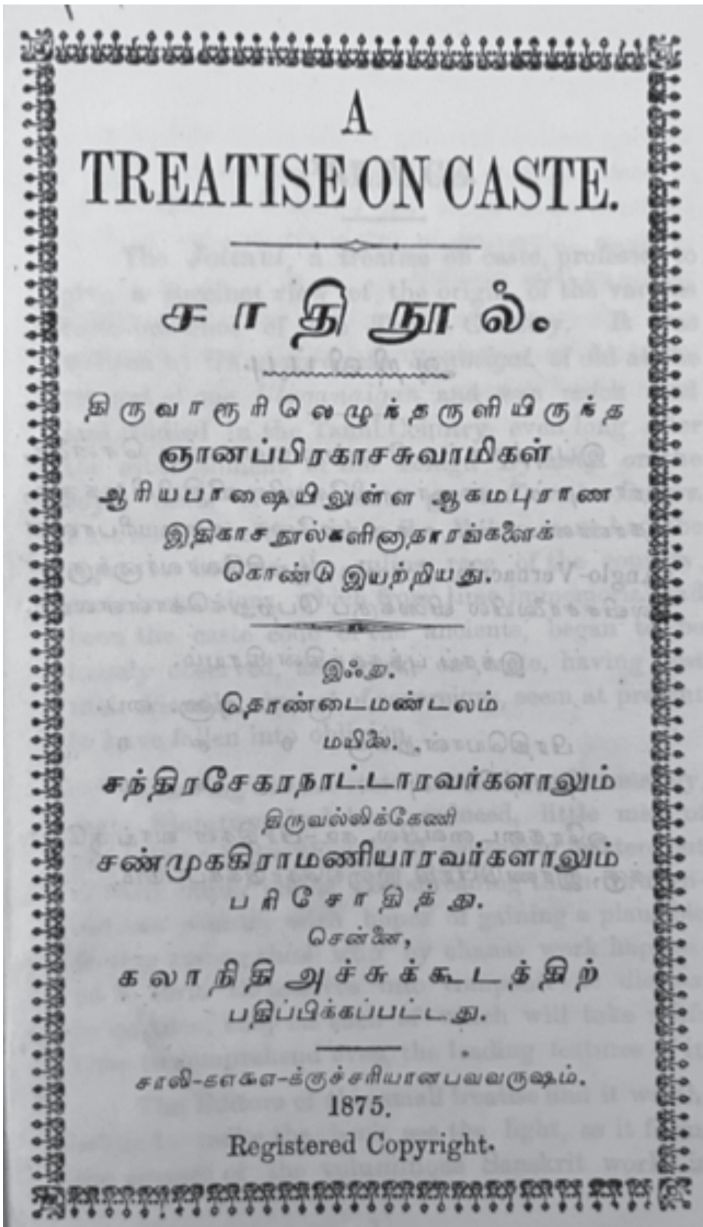 A
TREATISE ON CASTE.
சாதிநூல்.
திருவாரூரிலெழுந்தருளியிருந்த
ஞானப்பிரகாசசுவாமிகள்
ஆரியபாஷையிலுள்ள ஆகமபுராண
இதிகாசநூல்களினாதாரங்களைக்
கொண்டு இயற்றியது.
இஃது.
தொண்டைமண்டலம்
மயிலை.
சந்திரசேகரநாட்டாரவர்களாலும்
திருவல்லிக்கேணி
சண்முககிராமணியாரவர்களாலும்
பரிசோதித்து.
சென்னை,
கலாநிதி அச்சுக்கூடத்திற்
பதிப்பிக்கப்பட்டது.
க்குச்சரியானபவவருஷம்.
1875.
Registered Copyright.